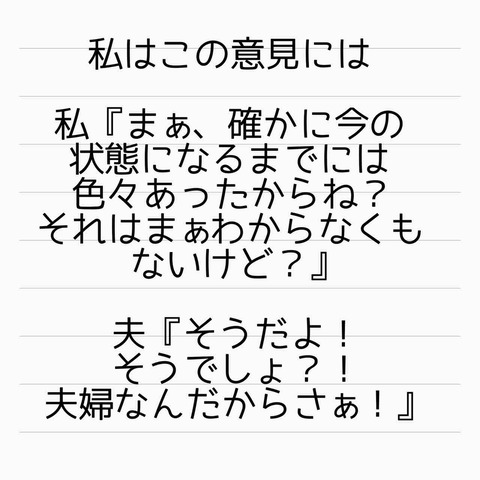 私はこの意見には
私『まぁ、確かに今の
状態になるまでには
色々あったからね？
それはまぁわからなくも
ないけど？』
夫『そうだよ！
そうでしょ？！
夫婦なんだからさぁ！』